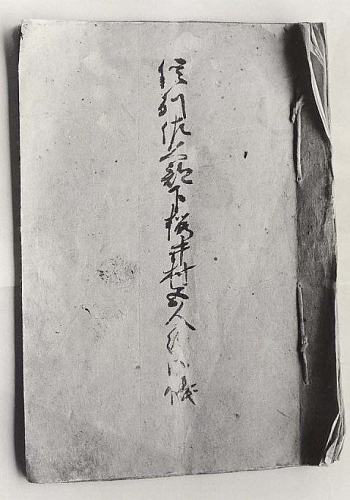 信州佐久郡下桜井村五人組御帳